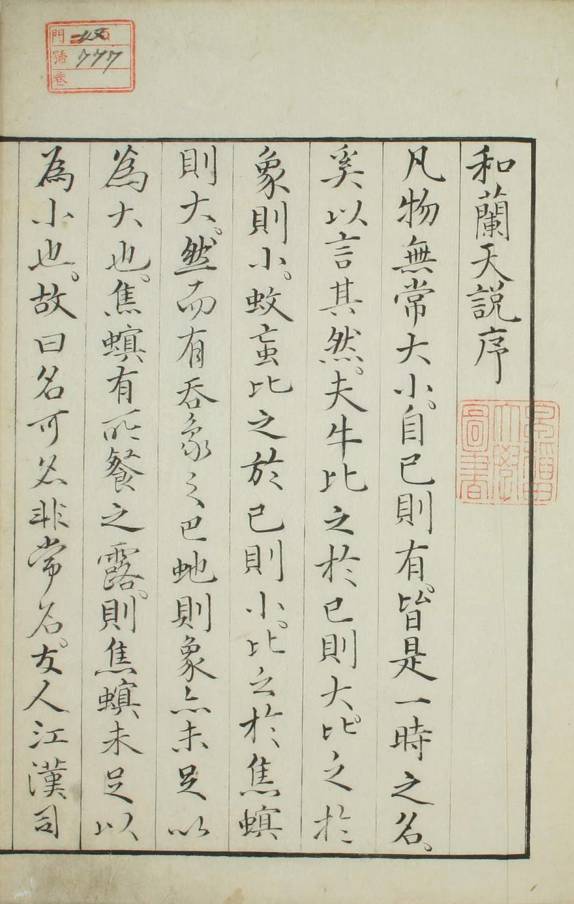 和蘭天説序
凡物無常大小。自已則有。皆是一時之名。
奚以言其然。夫牛比之於已則大。比之於
象則小。蚊䖟比之於已則小。比之於焦螟
則大。然而有吞象之巴虵則象亦未足以
為大也。焦螟有所餐之露。則焦螟未足以
為小也。故曰名可名非常名。友人江漢司
門
號
卷
777
圖書